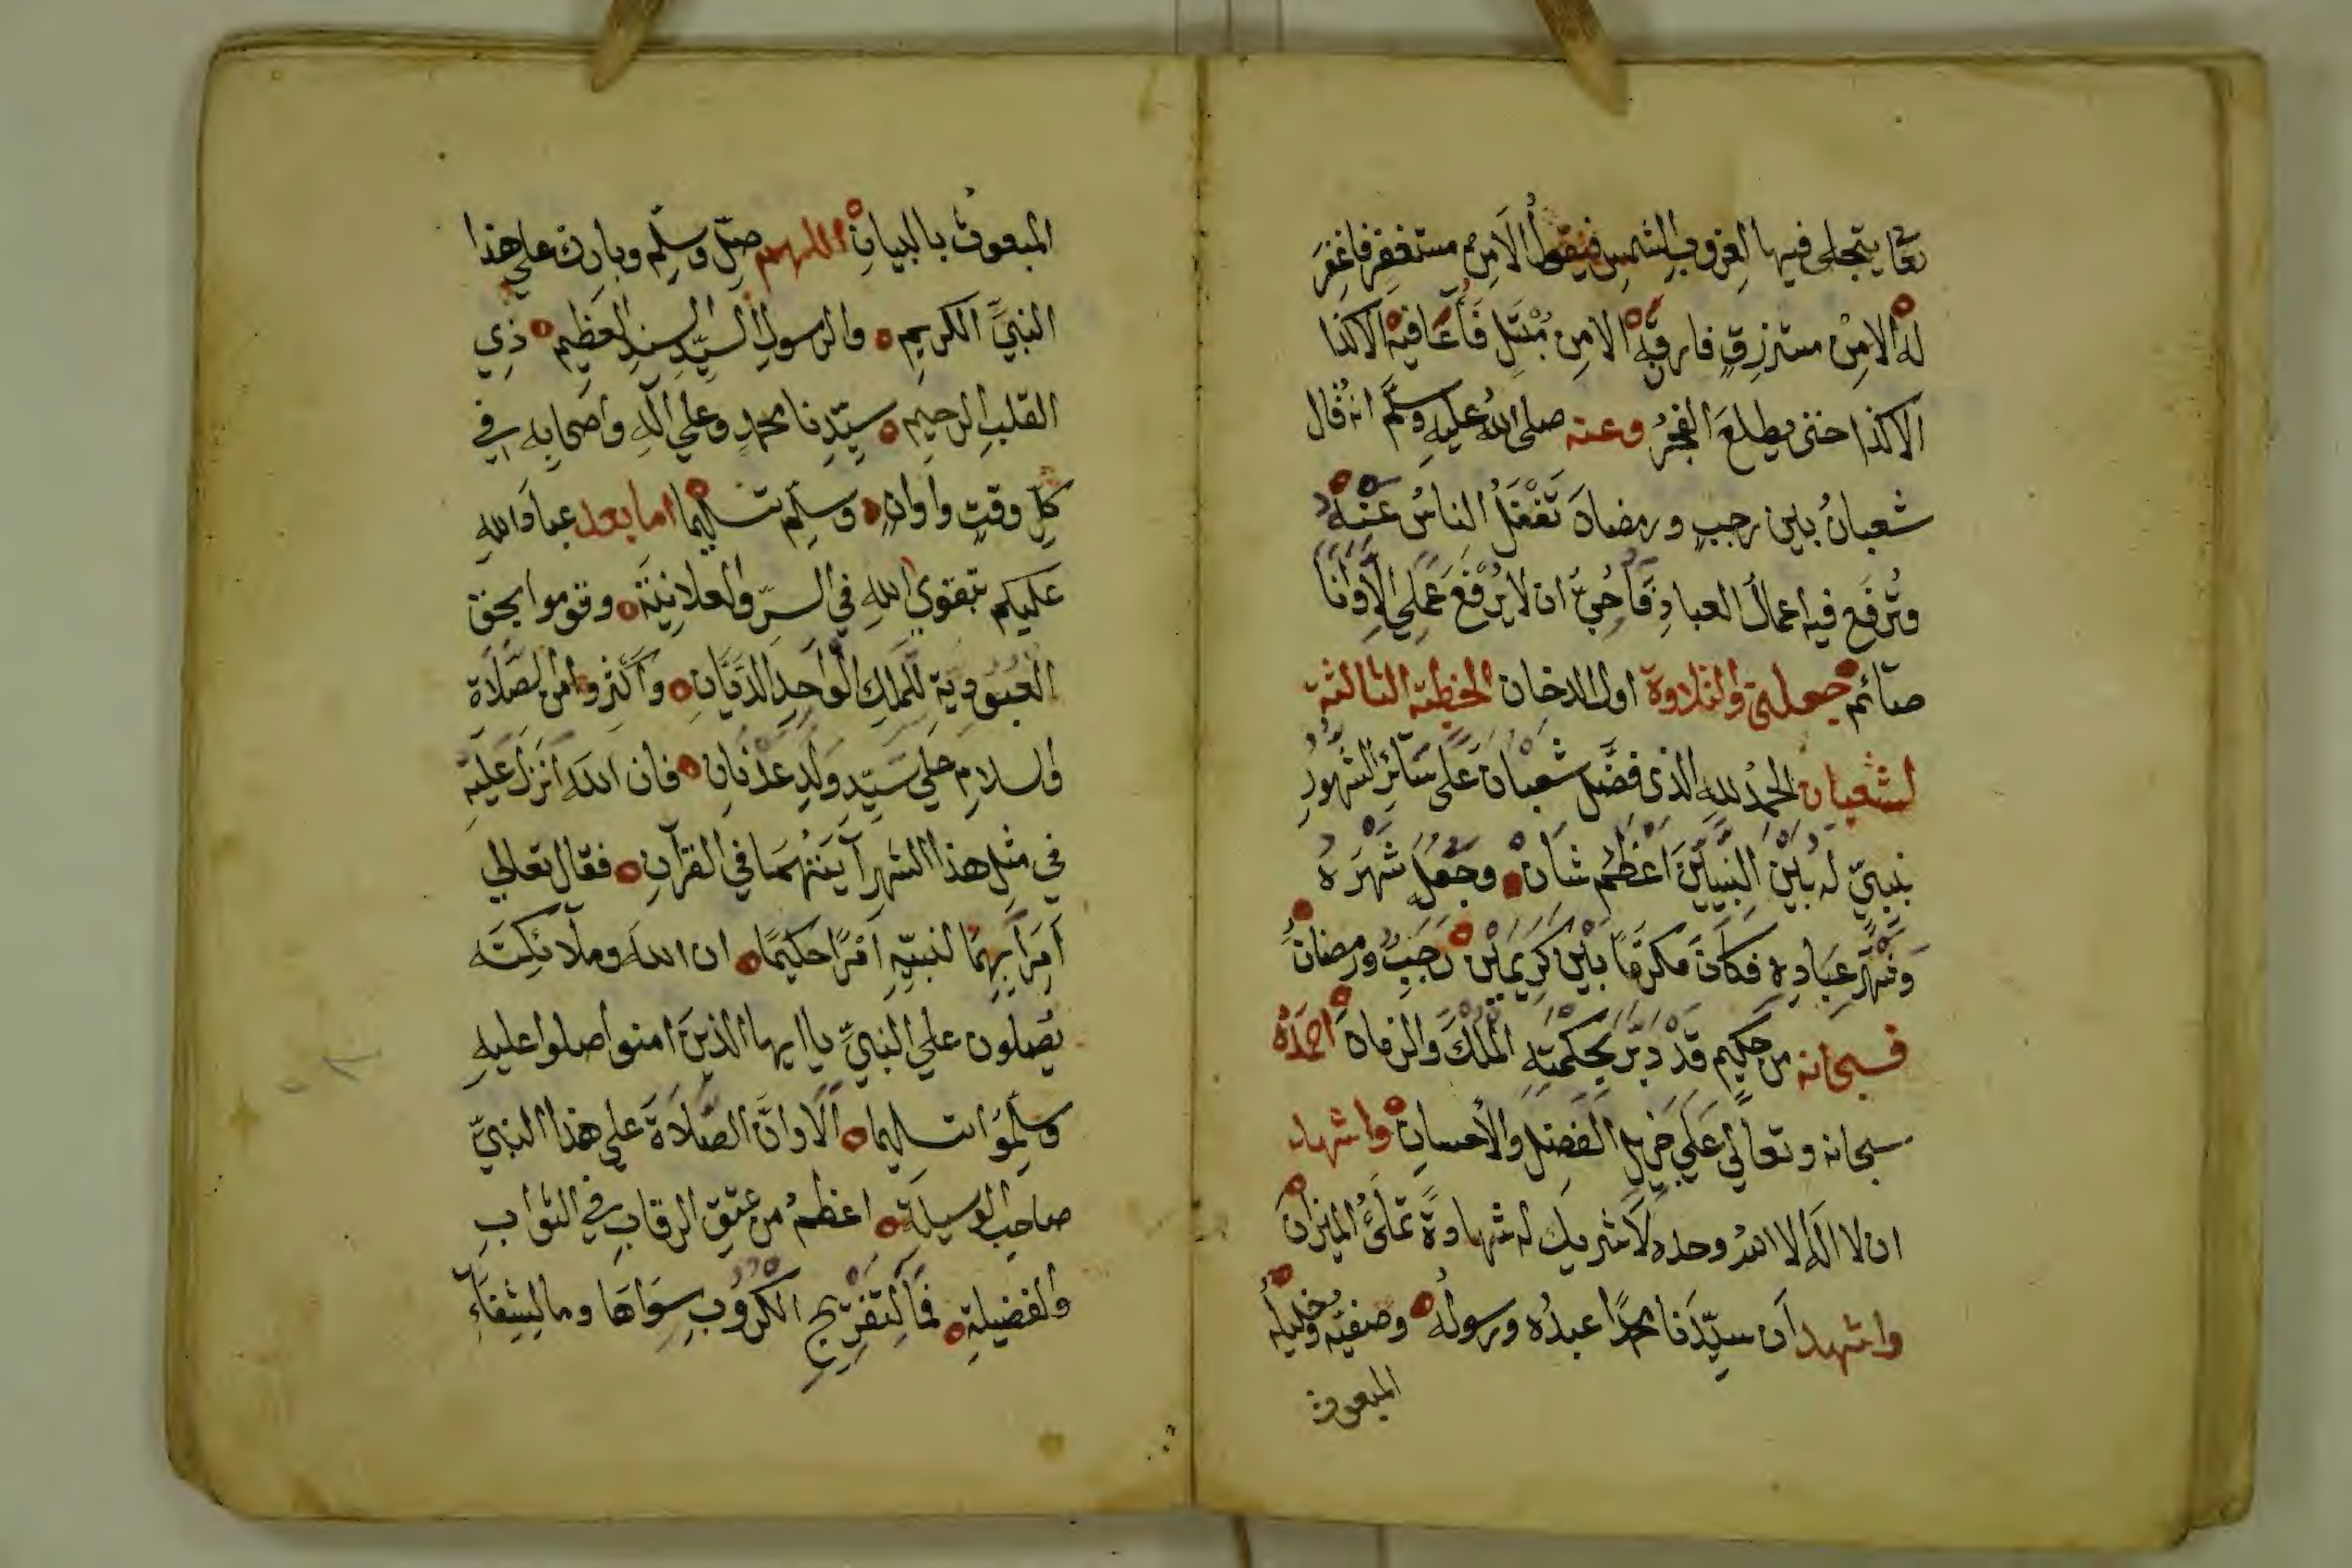 تعا يتجلى فيها لغروب الشمس فيقول ألا من مستغفر فاغفر
له الا من مسترزق فارزقه الا من مبتل فأعافيه الا كذا
الا كذا حتى يطلع الفجر وعنه صلى الله عليه وسلم انه قال
شعبان بين رجب ورمضان تغفل الناس عنه
وترفع فيه اعمال العباد فأحب ان لا يرفع عملي إلا وأنا
صائم جعلني والتلاوة اول الدخان الخطبة الثالثة
لشعبان الحمد لله الذي فضل شعبان على سائر الشهور
بنبي له بين النبيين أعظم شان وجعل شهره
وشهر عباده فكان مكرما بين كريمين رجب ورمضان
فسبحانه من حكيم قد دبر بحكمته الملك والزمان احمده
سبحانه وتعالي علي جزيل الفضل والأحسان واشهد
ان لا اله الا الله وحده لا شريك له شهادة تملئ الميزان
واشهد أن سيدنا محمدا عبده ورسوله وصفيه وخليله
المبعوث
المبعوث بالبيان اللهم صل وسلم وبارك علي هذا
النبي الكريم والرسول السيد السند العظيم ذي
القلب الرحيم سيدنا محمد وعلي آله واصحابه في
كل وقت وأوان وسلم تسليما اما بعد عباد الله
عليكم بتقوي الله في السر والعلانية وقوموا بحق
العبودية للملك الواحد الديان وأكثروا من الصلاة
والسلام علي سيد ولد عدنان فان الله أنزل عليه
في مثل هذا الشهر آيتنهما في القرآن فقال تعالي
آمرا بهما لنبيه أمرا حكيما ان الله وملائكته
يصلون علي النبي يا ايها الذين امنوا صلوا عليه
وسلموا تسليما ألا وان الصلاة علي هذا النبي
صاحب الوسيلة اعظم من عتق الرقاب في الثواب
والفضيلة فما لتفريج الكروب سواها وما لشفاء